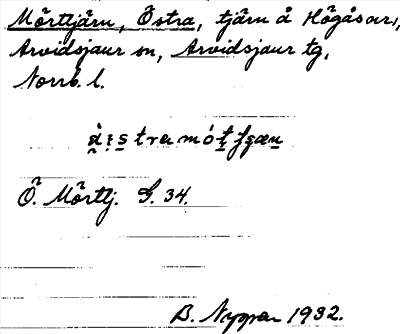 Mörttjärn, Östra, tjärn å Högåsen,
Arvidsjaur sn, Arvidsjaur tg,
Norrb. l.
Ö. Mörttj. G. 34.
B. Nygren 1932.